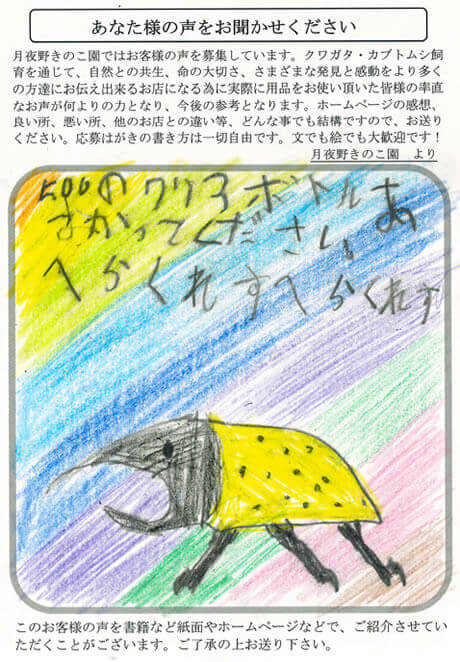 あなた様の声をお聞かせください
月夜野きのこ園ではお客様の声を募集しています。クワガタ・カブトムシ飼
育を通じて、自然との共生、命の大切さ、さまざまな発見と感動をより多く
の方達にお伝え出来るお店になる為に実際に用品をお使い頂いた皆様の率直
なお声が何よりの力となり、今後の参考となります。ホームページの感想、
良い所、悪い所、他のお店との違い等、どんな事でも結構ですので、お送り
ください。応募はがきの書き方は一切自由です。文でも絵でも大歓迎です！
月夜野きのこ園　より
500のクリアボトル
まかってください。
へらくれすへらくれす
このお客様の声を書籍など紙面やホームページなどで、ご紹介させていた
だくことがございます。ご了承の上お送り下さい。